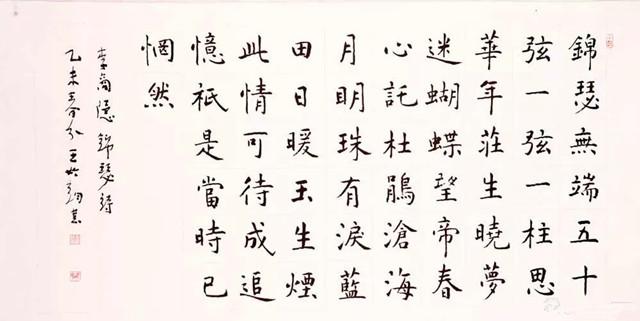 錦瑟無端五十
弦一弦一柱思
華年莊生曉夢
迷蝴蝶望帝春
心託杜鵑滄海
月明珠有淚藍
田日暖玉生煙
此情可待成追
憶祇是當時已
惘然
李商隱錦瑟詩
乙未春分王